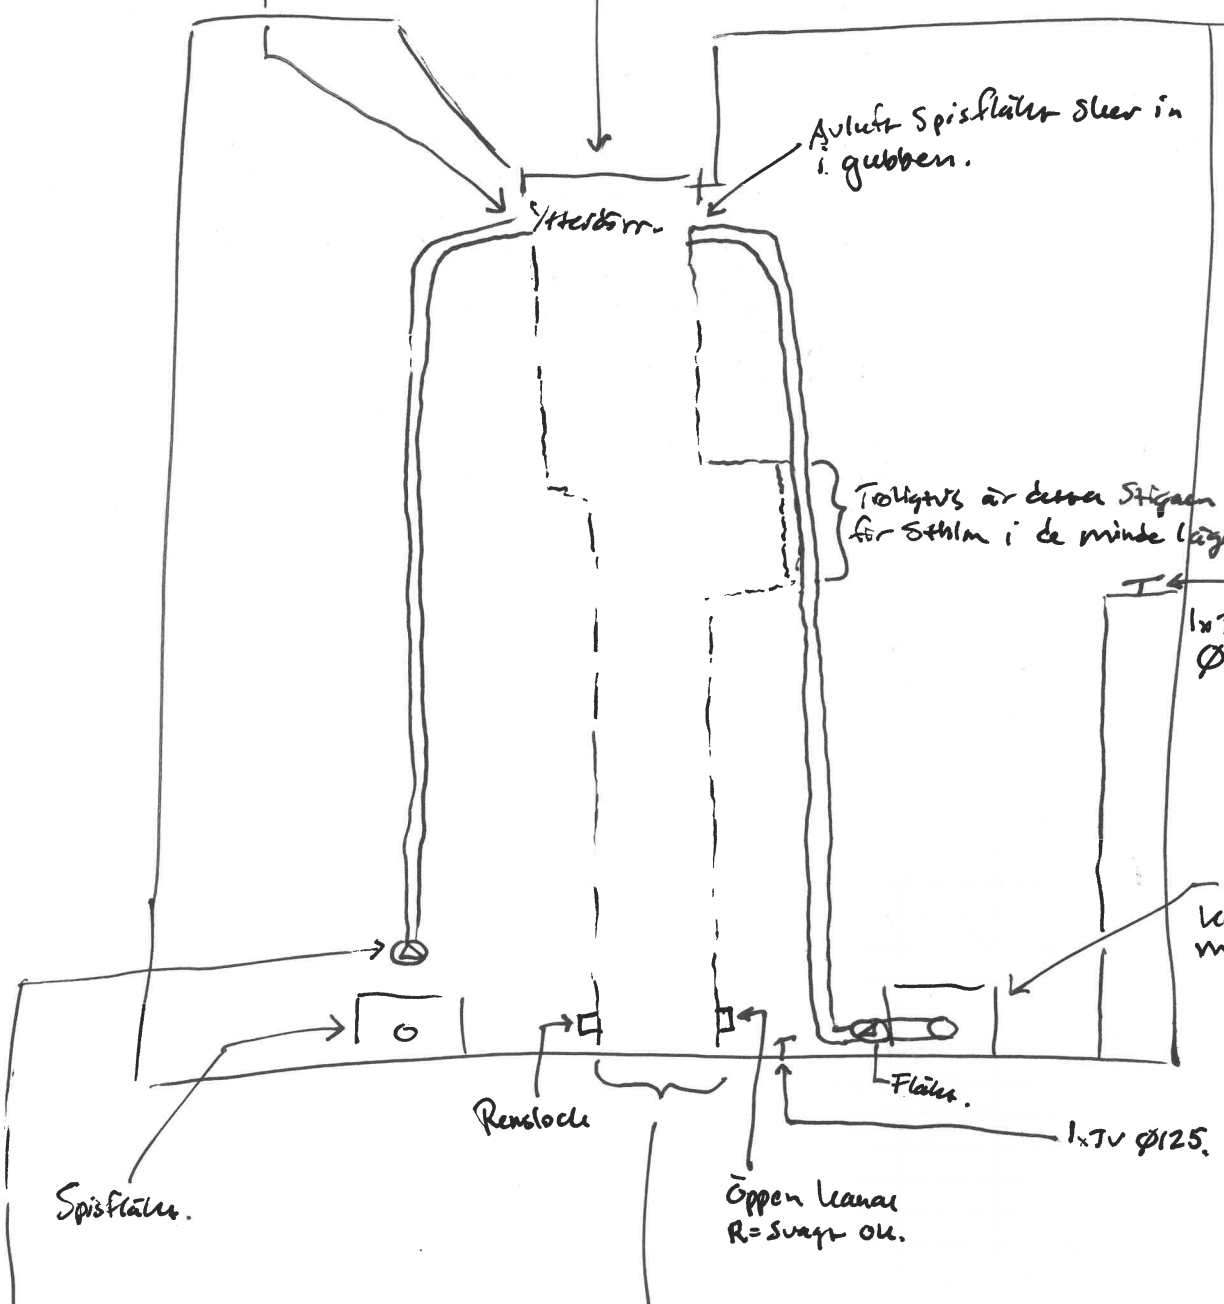 Avluft Spisfläkt sker in
i gubben.
Ytterdörr.
Troligtvis är detta Stigaren
för Sthlm i de minde läg
1x T
Ø
m
Fläkt.
Renslock
1xTV Ø125.
Spisfläkt.
Öppen kanal
R= Svagt ok.